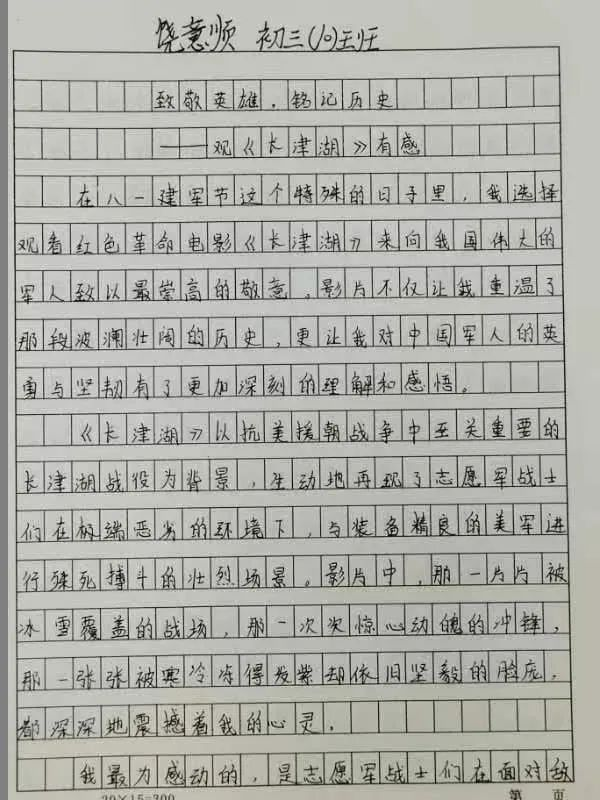 饶意顺 初三(10)班
致敬英雄，铭记历史
——观《长津湖》有感
在八一建军节这个特殊的日子里，我选择
观看红色革命电影《长津湖》来向我国伟大的
军人致以最崇高的敬意。影片不仅让我重温了
那段波澜壮阔的历史，更让我对中国军人的英
勇与坚韧有了更加深刻的理解和感悟。
《长津湖》以抗美援朝战争中至关重要的
长津湖战役为背景，生动地再现了志愿军战士
们在极端恶劣的环境下，与装备精良的美军进
行殊死搏斗的壮烈场景。影片中，那一片片被
冰雪覆盖的战场，那一次次惊心动魄的冲锋，
那一张张被寒冷冻得发紫却依旧坚毅的脸庞，
都深深地震撼着我的心灵。
我最为感动的，是志愿军战士们在面对敌
20×15=300 第 页